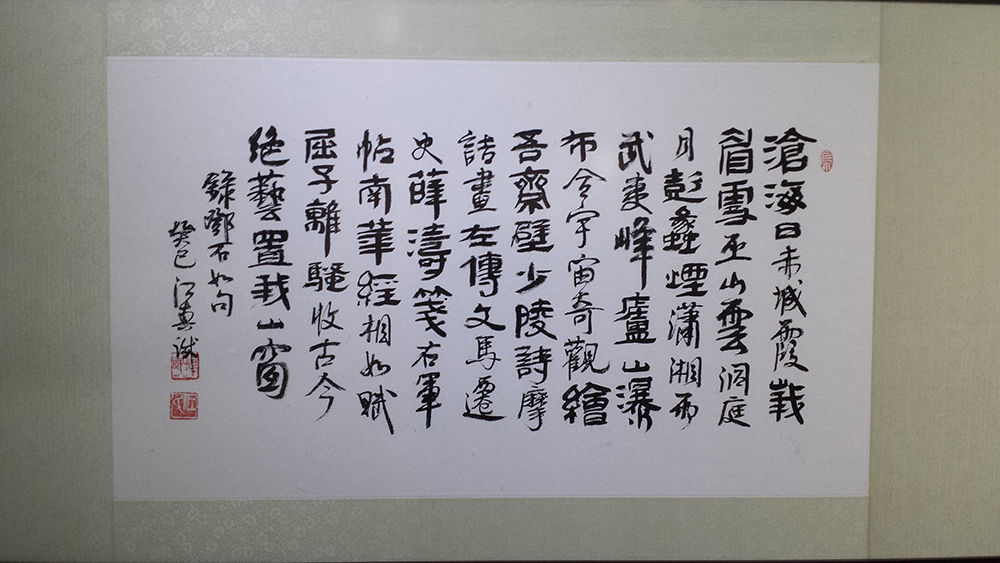 滄海日赤城霞峩
眉雪巫山雲洞庭
月彭蠡煙瀟湘雨
武夷峰廬山瀑
布合宇宙奇觀繪
吾齋壁少陵詩摩
詰畫左傳文馬遷
史薛濤箋右軍
帖南華經相如賦
屈子離騷收古今
絶藝置我山窗
錄鄧石如句
癸巳